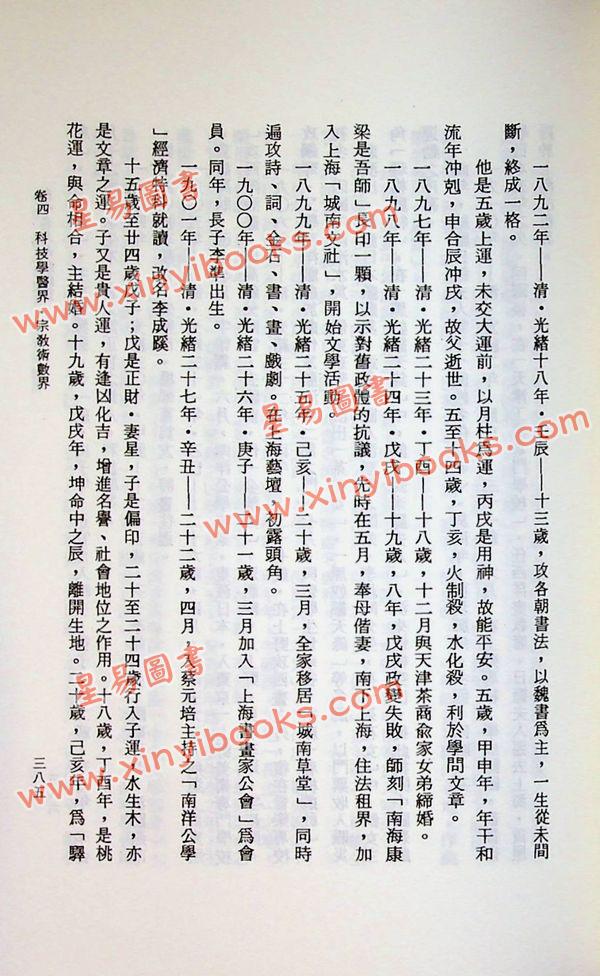 一八九二年——清·光緒十八年·壬辰——十三歲，攻各朝書法，以魏書爲主，一生從未間
斷，終成一格。
他是五歲上運，未交大運前，以月柱爲運，丙戌是用神，故能平安。五歲，甲申年，年干和
流年冲剋，申合辰冲戌，故父逝世。五至十四歲，丁亥，火制殺，水化殺，利於學問文章。
一八九七年——清·光緒二十三年·丁酉——十八歲，十二月與天津茶商兪家女弟締婚。
一八九八年——清·光緒二十四年·戊戌——十九歲，八年，戊戌政變失敗，師刻「南海康
梁是吾師」長印一顆，以示對舊政體的抗議，先時在五月，奉母偕妻，南〇上海，住法租界，加
入上海「城南文社」，開始文學活動。
一八九九年——清·光緒二十五年·己亥——二十歲，三月，全家移居「城南草堂」，同時
遍攻詩、詞、金石、書、畫、戲劇。在上海藝壇，初露頭角。
一九〇〇年——清·光緒二十六年·庚子——二十一歲，三月加入「上海書畫家公會」爲會
員。同年，長子李準出生。
一九〇一年——清·光緒二十七年·辛丑——二十二歲，四月，入蔡元培主持之「南洋公學
」經濟特科就讀，改名李成蹊。
十五歲至廿四歲戊子；戊是正財·妻星，子是偏印，二十至二十四歲行入子運，水生木，亦
是文章之運。子又是貴人運，有逢凶化吉，增進名譽、社會地位之作用。十八歲，丁酉年，是桃
花運，與命相合，主結婚。十九歲，戊戌年，坤命中之辰，離開生地。二十歲，己亥年，爲「驛
卷四　科技學醫界　宗敎術數界
三八五
星易圖書
www.xinyibooks.com
星易圖書
www.xinyibooks.com
星易圖書
www.xinyibooks.com